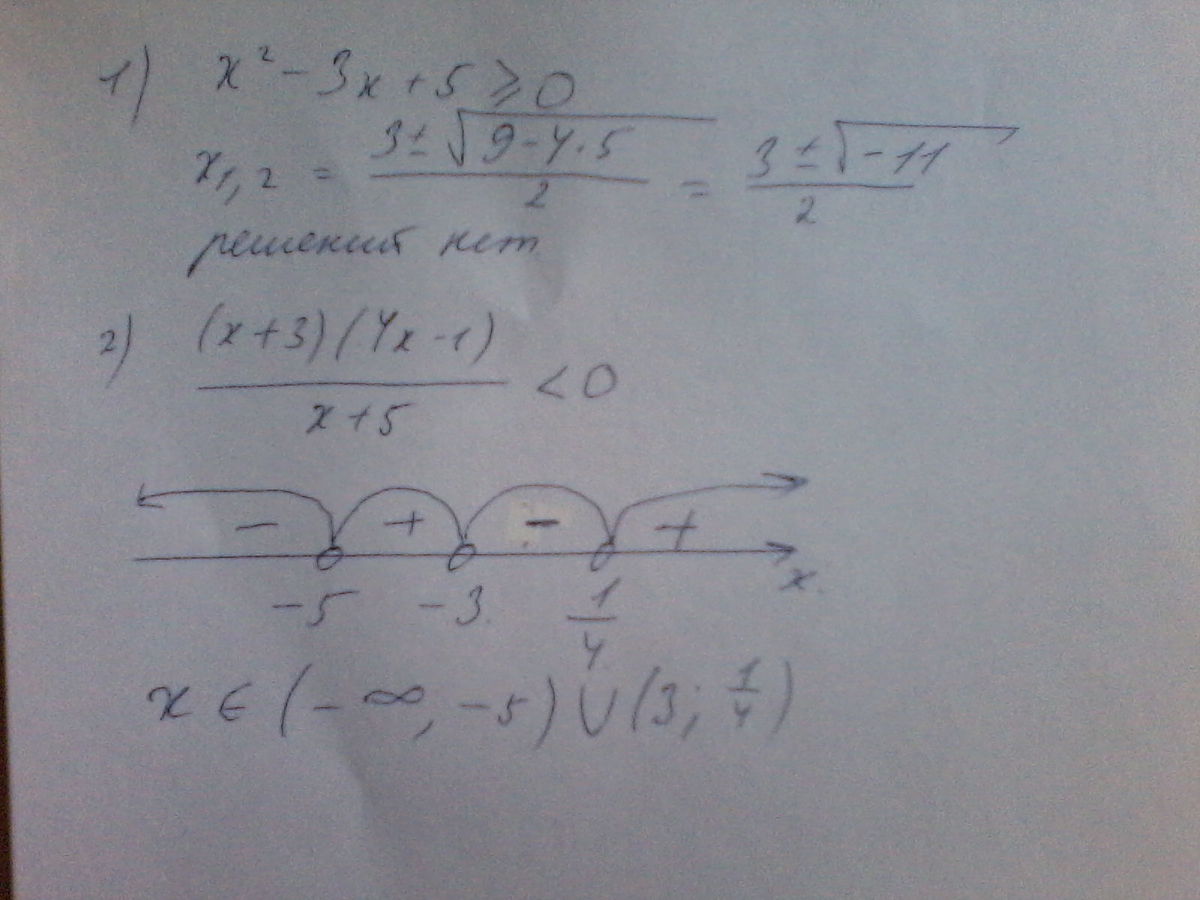 1) x² - 3x + 5 ⩾ 0
x₁,₂ = (3 ± √(9 - 4·5))/2 = (3 ± √(-11))/2
решений нет
2) ((x+3)(4x-1))/(x+5) < 0
- + - +
-5 -3 1/4 x
x ∈ (-∞, -5) ∪ (3; 1/4)